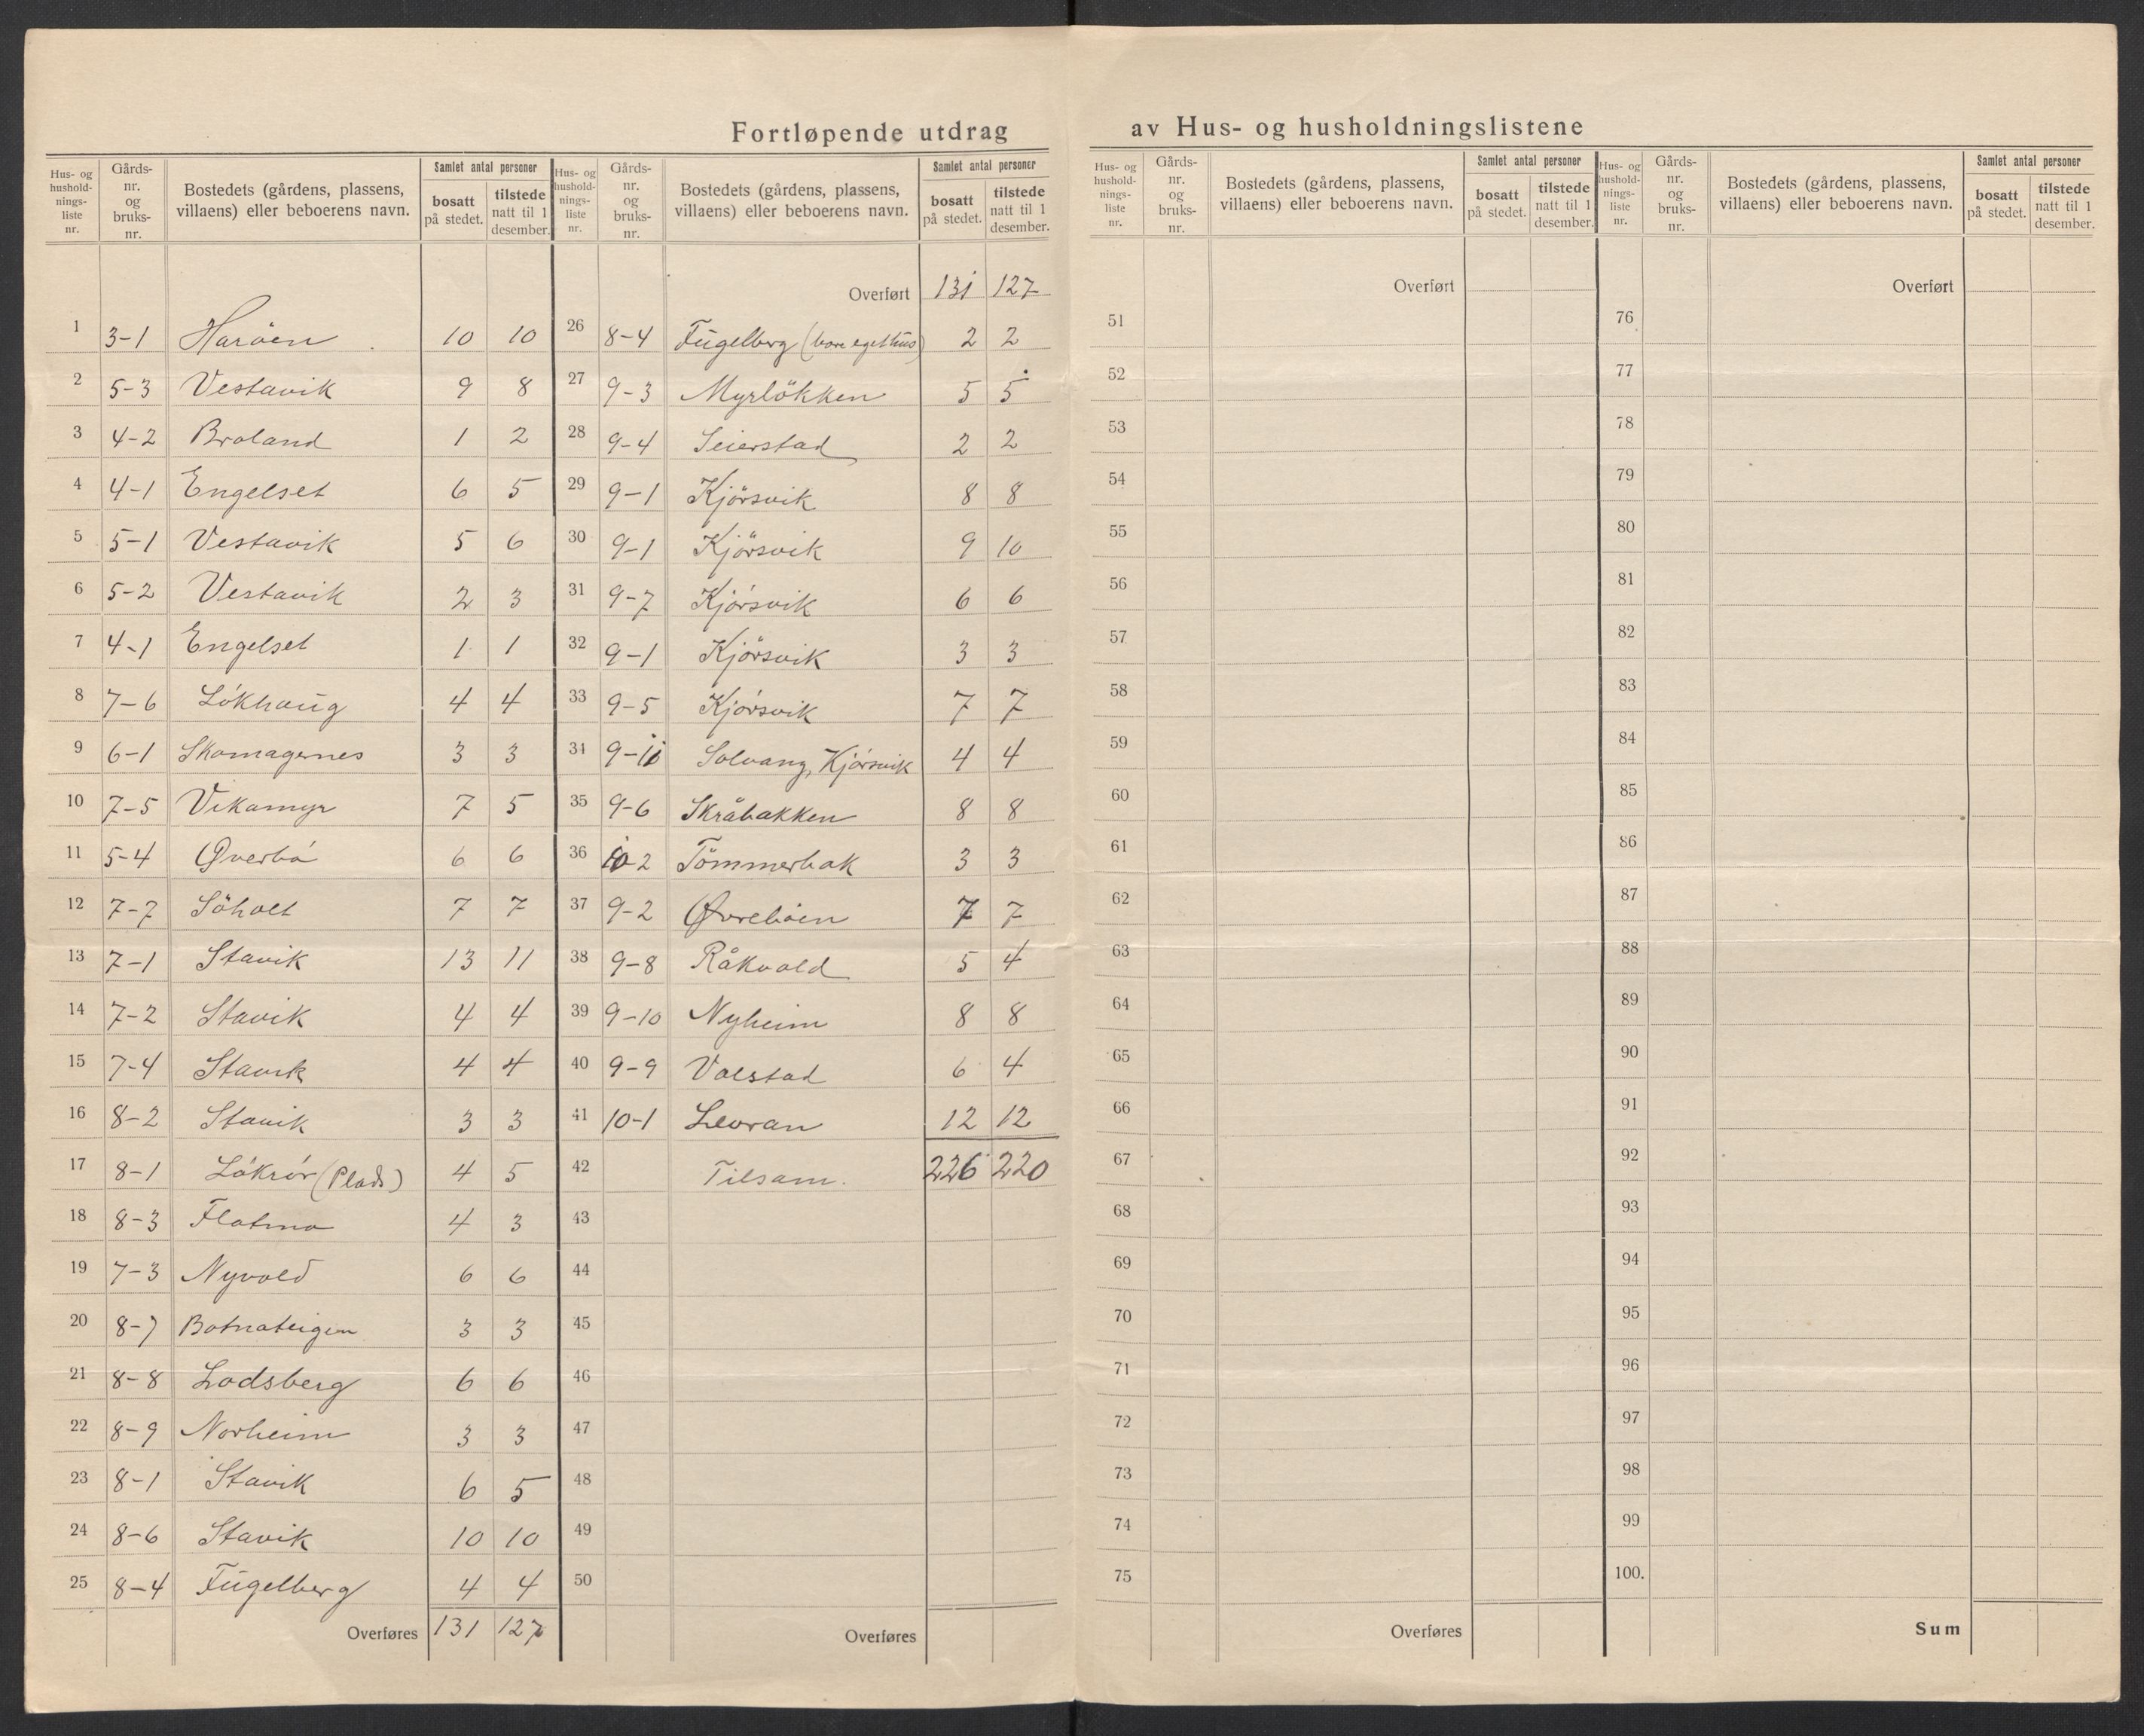 Fortløpende utdrag av Hus- og husholdningslistene
Hus- og hushold-nings-liste nr. Gårds-nr. og bruks-nr. Bostedets (gårdens, plassens, villaens) eller beboerens navn. Samlet antal personer bosatt på stedet. tilstede natt til 1 desember.
1 3-1 Haröen 10 10
2 5-3 Vestavik 9 8
3 4-2 Braland 1 2
4 4-1 Engelset 6 5
5 5-1 Vestavik 5 6
6 5-2 Vestavik 2 3
7 4-1 Engelset 1 1
8 7-6 Lökhaug 4 4
9 6-1 Skomagernes 3 3
10 7-5 Vikamyr 7 5
11 5-4 Øverbö 6 6
12 7-7 Söholt 7 7
13 7-1 Stavik 13 11
14 7-2 Stavik 4 4
15 7-4 Stavik 4 4
16 8-2 Stavik 3 3
17 8-1 Lökrör (Plads) 4 5
18 8-3 Flatmo 4 3
19 7-3 Nyvold 6 6
20 8-7 Botnateigen 3 3
21 8-8 Lodsberg 6 6
22 8-9 Norheim 3 3
23 8-1 Stavik 6 5
24 8-6 Stavik 10 10
25 8-4 Fugelberg 4 4
Overføres 131 127
Hus- og husholdnings-liste nr. Gårds-nr. og bruks-nr. Bostedets (gårdens, plassens, villaens) eller beboerens navn. Samlet antal personer bosatt på stedet. tilstede natt til 1 desember.
Overført 131 127
26 8-4 Fugelberg (bare eget hus) 2 2
27 9-3 Myrlökken 5 5
28 9-4 Seierstad 2 2
29 9-1 Kjörsvik 8 8
30 9-1 Kjörsvik 9 10
31 9-7 Kjörsvik 6 6
32 9-1 Kjörsvik 3 3
33 9-5 Kjörsvik 7 7
34 9-11 Solvang, Kjörsvik 4 4
35 9-6 Skråbakken 8 8
36 10-2 Tömmerbak 3 3
37 9-2 Øvreböen 7 7
38 9-8 Råkvold 5 4
39 9-10 Nyheim 8 8
40 9-9 Volstad 6 4
41 10-1 Levran 12 12
42 Tilsam. 226 220
43
44
45
46
47
48
49
50
Overføres
Hus- og hushold-nings-liste nr. Gårds-nr. og bruks-nr. Bostedets (gårdens, plassens, villaens) eller beboerens navn. Samlet antal personer bosatt på stedet. tilstede natt til 1 desember.
Overført
51
52
53
54
55
56
57
58
59
60
61
62
63
64
65
66
67
68
69
70
71
72
73
74
75
Overføres
Hus- og husholdnings-liste nr. Gårds-nr. og bruks-nr. Bostedets (gårdens, plassens, villaens) eller beboerens navn. Samlet antal personer bosatt på stedet. tilstede natt til 1 desember.
Overført
76
77
78
79
80
81
82
83
84
85
86
87
88
89
90
91
92
93
94
95
96
97
98
99
100.
Sum